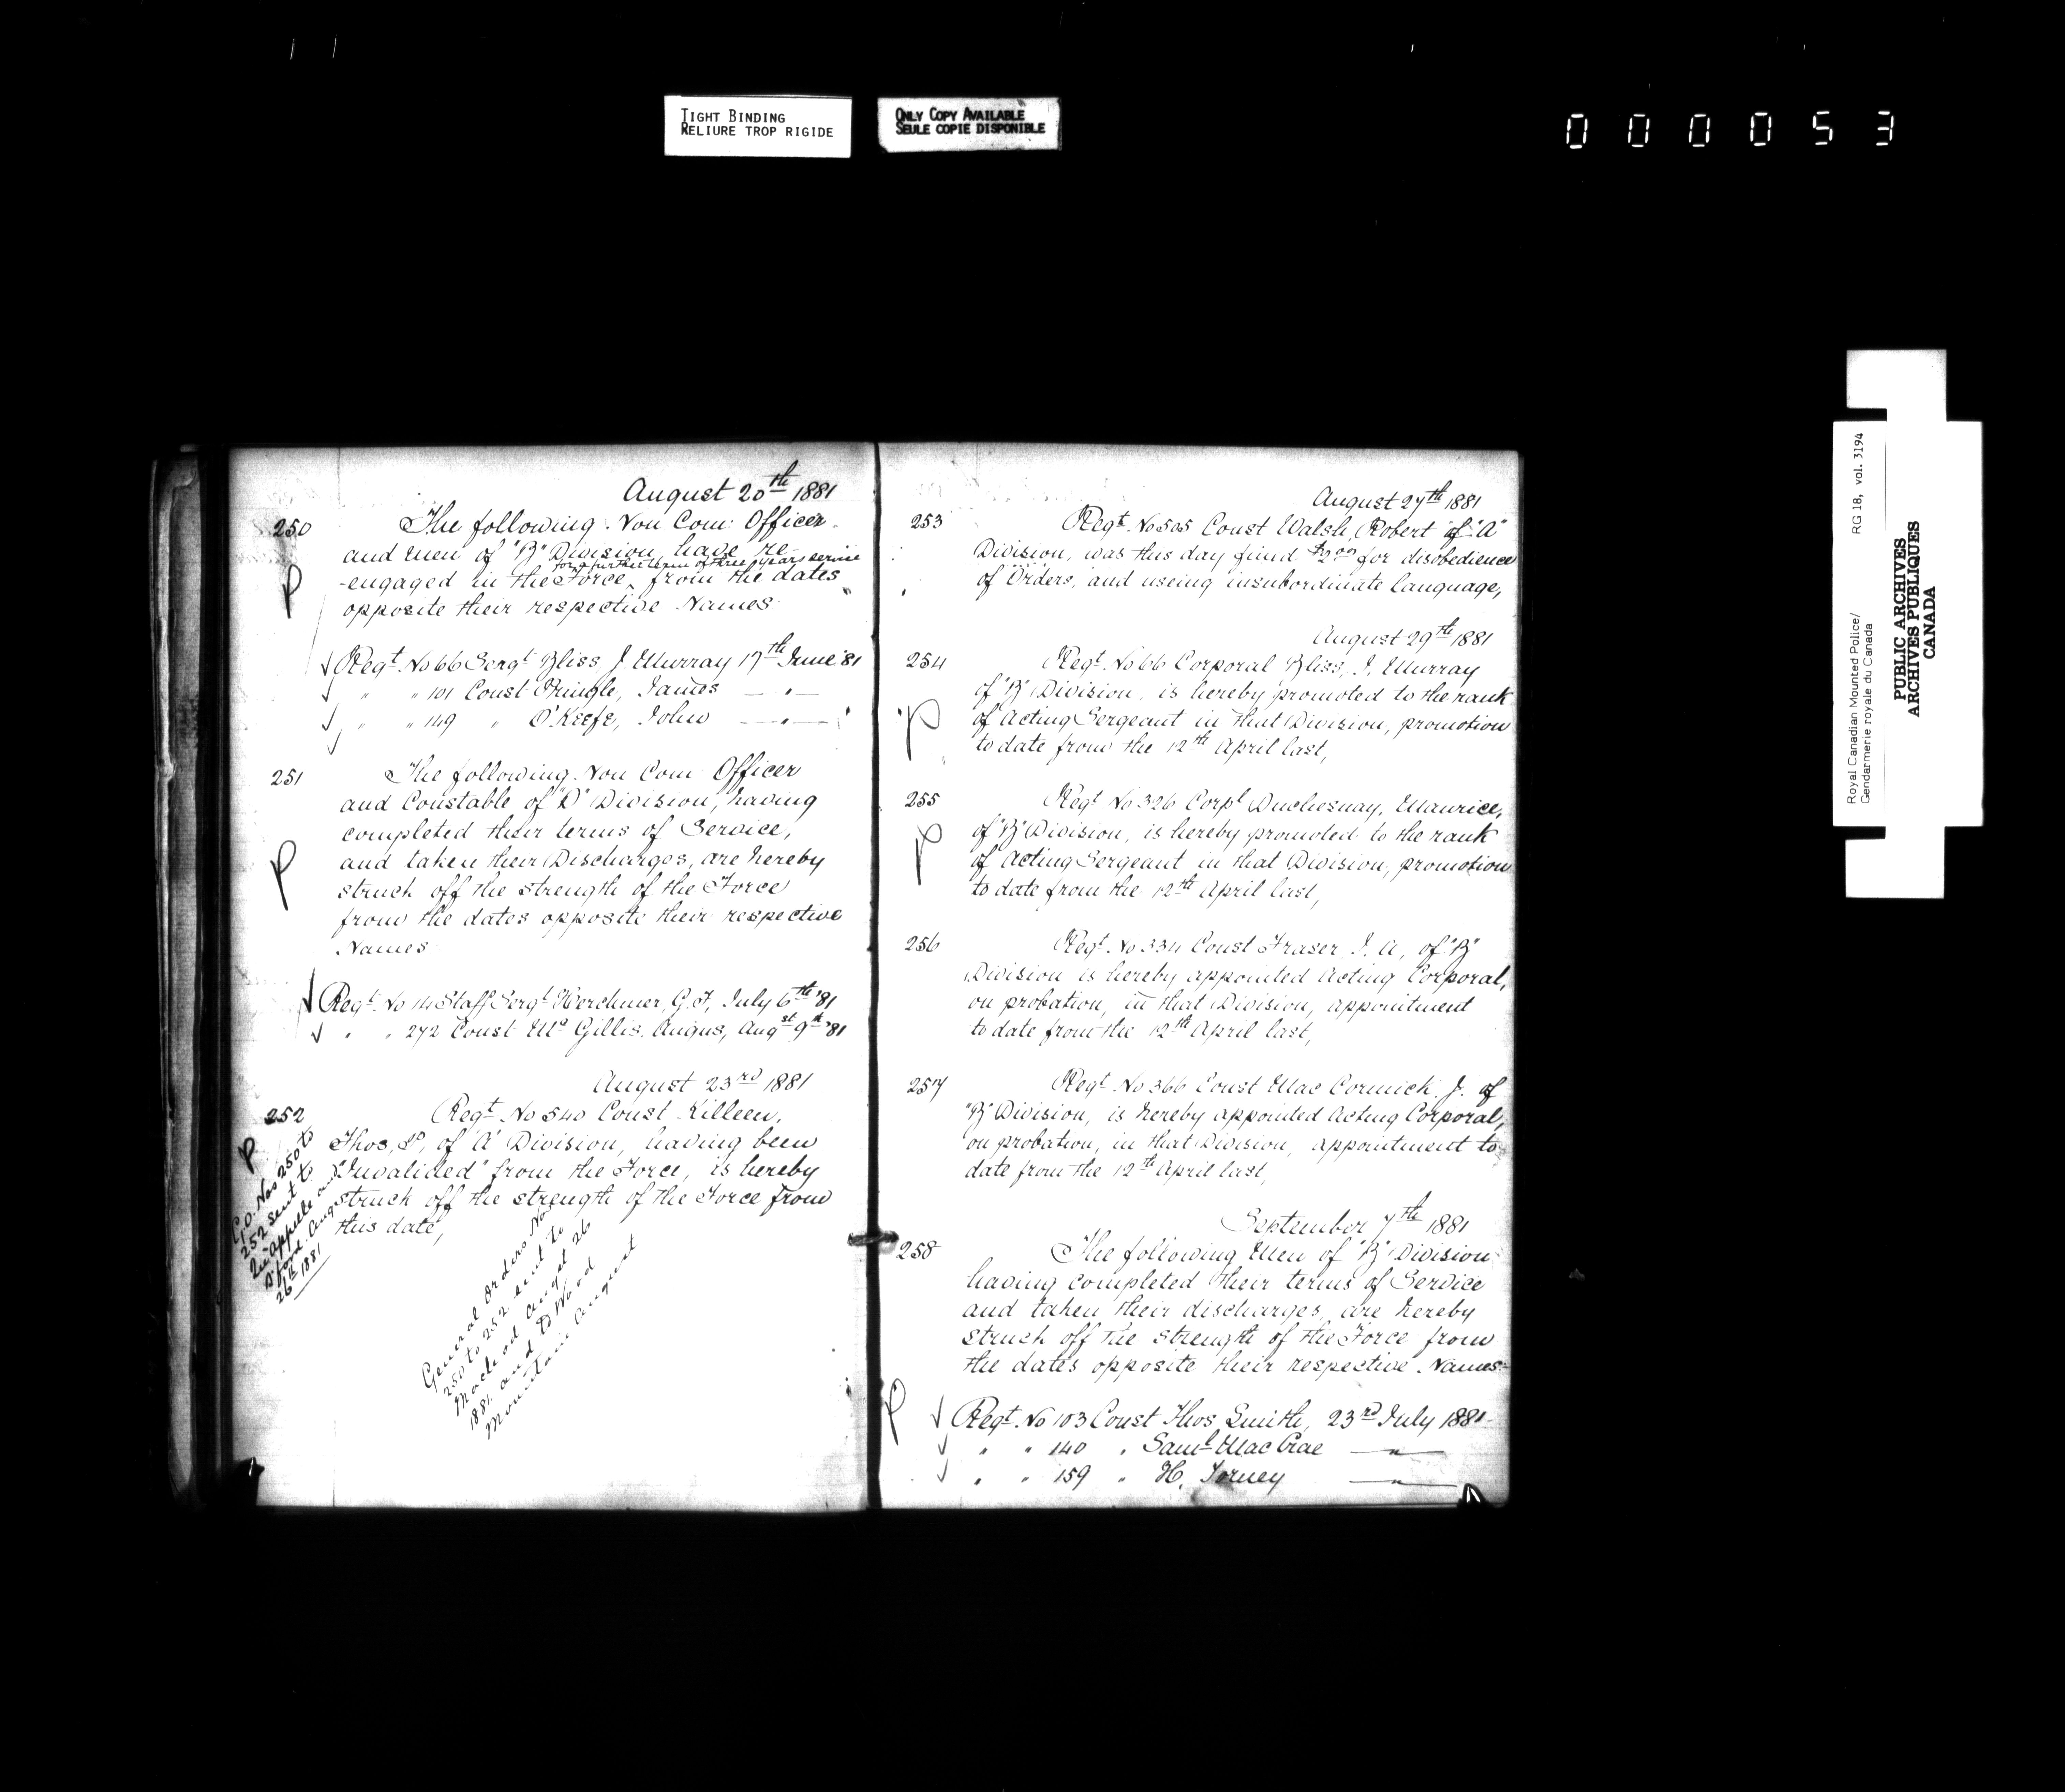 TIGHT BINDING
RELIURE TROP RIGIDE
ONLY COPY AVAILABLE
SEULE COPIE DISPONIBLE
000053
August 20th 1881
250 The following Non Com: Officer
and Men of "B" Division, have re-
for a further term of three years service
-engaged in the Force, from the dates
opposite their respective Names
P
Regt. No 66 Sergt Bliss J. Murray 17th June '81
" " 101 Const Pringle, James — " —
" " 149 " O'Keefe, John — " —
251 The following Non Com Officer
and Constable of "D" Division, having
completed their terms of Service,
and taken their Discharges, are hereby
struck off the strength of the Force
from the dates opposite their respective
Names
P
Regt. No 14 Staff Sergt Herchmer, G. F, July 6th '81
" " 272 Const Mc Gillis Angus, Augst 9th '81
August 23rd 1881
252 Regt. No 540 Const Killeen,
Thos, of "A" Division, having been
"Invalided" from the Force, is hereby
struck off the strength of the Force from
this date,
P
G.O. Nos 250 to
252 sent to
Qu'appelle and
B'ford. Aug
26th 1881
General Orders No
250 to 252 sent to
Macleod Augst 26
1881. and to Wood
Mountain August
August 27th 1881
253 Regt. No 505 Const Walsh, Robert of "A"
Division, was this day fined $2.00 for disobedience
of Orders, and useing insubordinate language,
August 29th 1881
254 Regt. No 66 Corporal Bliss, J. Murray
of "B" Division, is hereby promoted to the rank
of Acting Sergeant in that Division, promotion
to date from the 12th April last,
P
255 Regt. No 326 Corpl Duchesnay, Maurice,
of "B" Division, is hereby promoted to the rank
of Acting Sergeant in that Division, promotion
to date from the 12th April last,
P
256 Regt. No 334 Const Fraser J. A, of "B"
Division is hereby appointed Acting Corporal,
on probation, in that Division, appointment
to date from the 12th April last,
257 Regt. No 366 Const Mac Cormick J. of
"B" Division, is hereby appointed Acting Corporal,
on probation, in that Division, appointment to
date from the 12th April last,
September 7th 1881
258 The following Men of "B" Division
having completed their terms of Service
and taken their discharges, are hereby
struck off the strength of the Force from
the dates opposite their respective Names:-
P
Regt. No 103 Const Thos Smith, 23rd July 1881
" " 140 " Saml Mac Crae — " —
" " 159 " H. Torney — " —
Royal Canadian Mounted Police/ RG 18, vol. 3194
Gendarmerie royale du Canada
PUBLIC ARCHIVES
ARCHIVES PUBLIQUES
CANADA